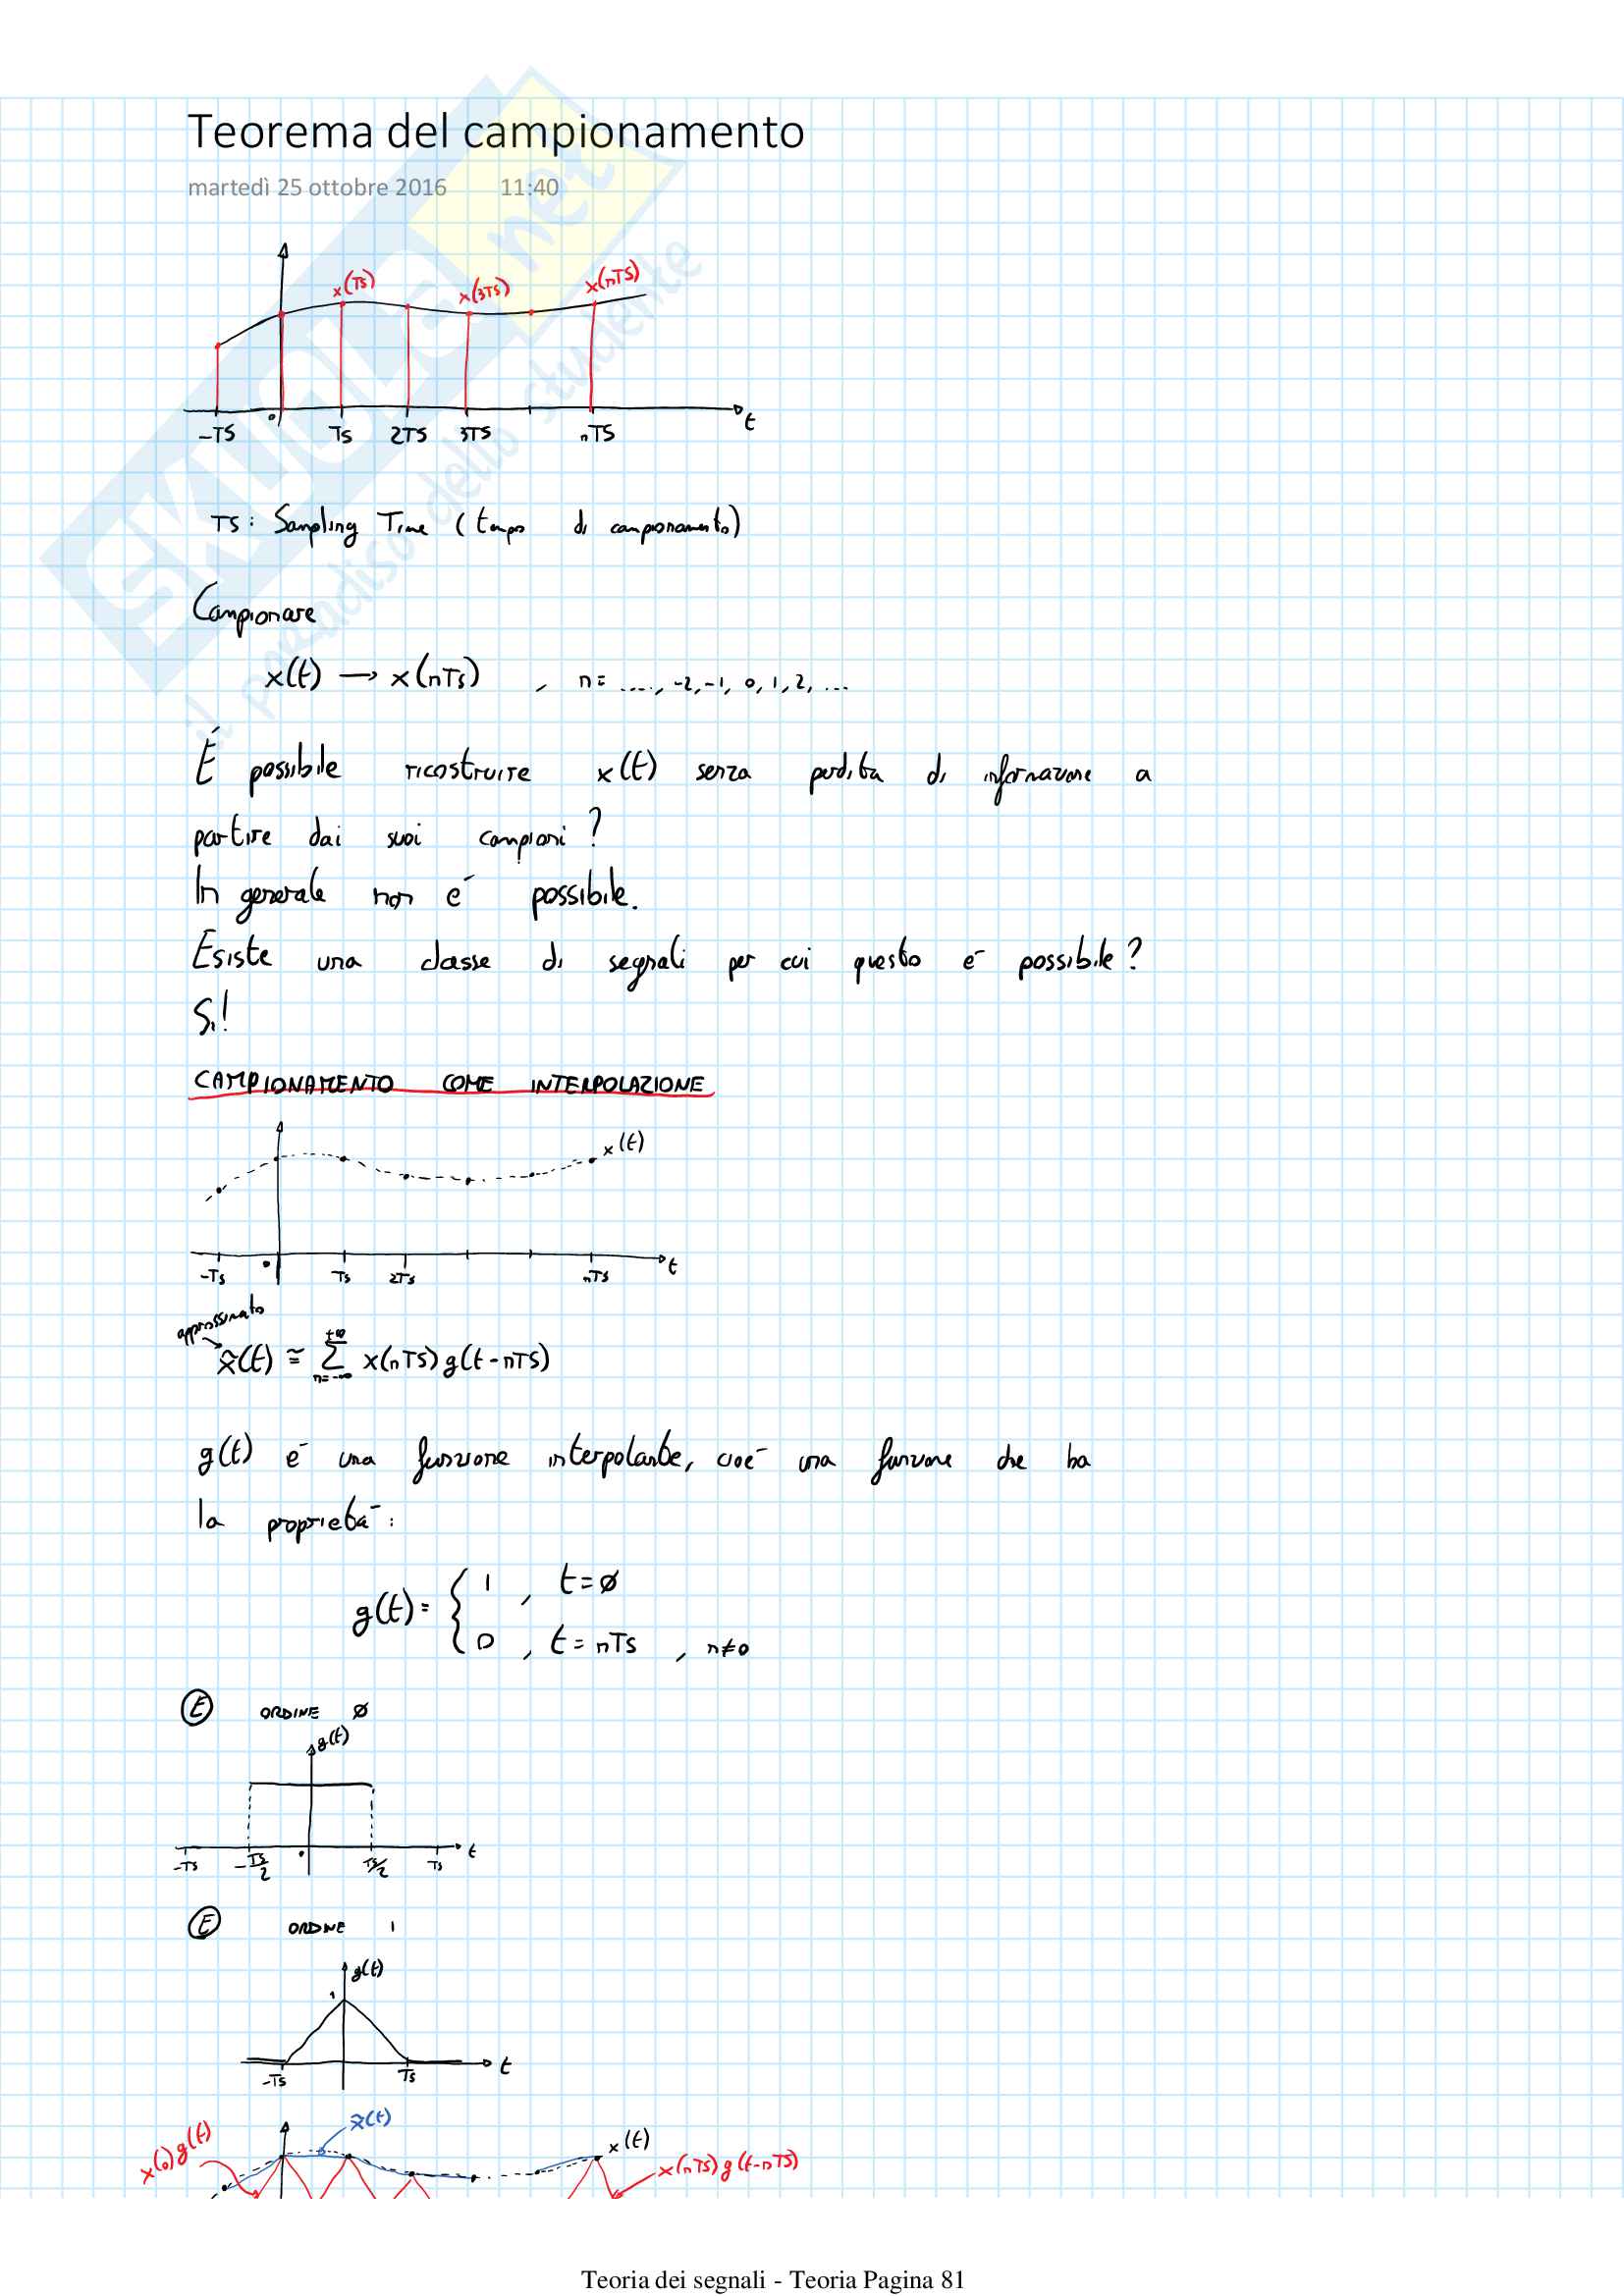 Teorema del campionamento
martedì 25 ottobre 2016 11:40
x(TS) x(3TS) x(nTS)
0 t
-TS TS 2TS 3TS nTS
TS: Sampling Time (tempo di campionamento)
Campionare
x(t) → x(nTs) , n = ...., -2, -1, 0, 1, 2, ...
É possibile ricostruire x(t) senza perdita di informazione a
partire dai suoi campioni?
In generale non é possibile.
Esiste una classe di segnali per cui questo é possibile?
Si!
CAMPIONAMENTO COME INTERPOLAZIONE
x(t)
0 t
-Ts Ts 2Ts nTS
approssimato
x̃(t) ≅ Σ_{n=-∞}^{+∞} x(nTS) g(t-nTS)
g(t) é una funzione interpolante, cioé una funzione che ha
la proprietá:
g(t) = { 1 , t=ø
0 , t = nTS , n≠0
E ORDINE ø
g(t)
0 t
-Ts -TS/2 TS/2 Ts
E ORDINE 1
g(t)
1
t
-Ts Ts
x(0)g(t) x̃(t) x(t)
x(nTS)g(t-nTS)
SKUOLA.net
il paradiso dello studente
Teoria dei segnali - Teoria Pagina 81